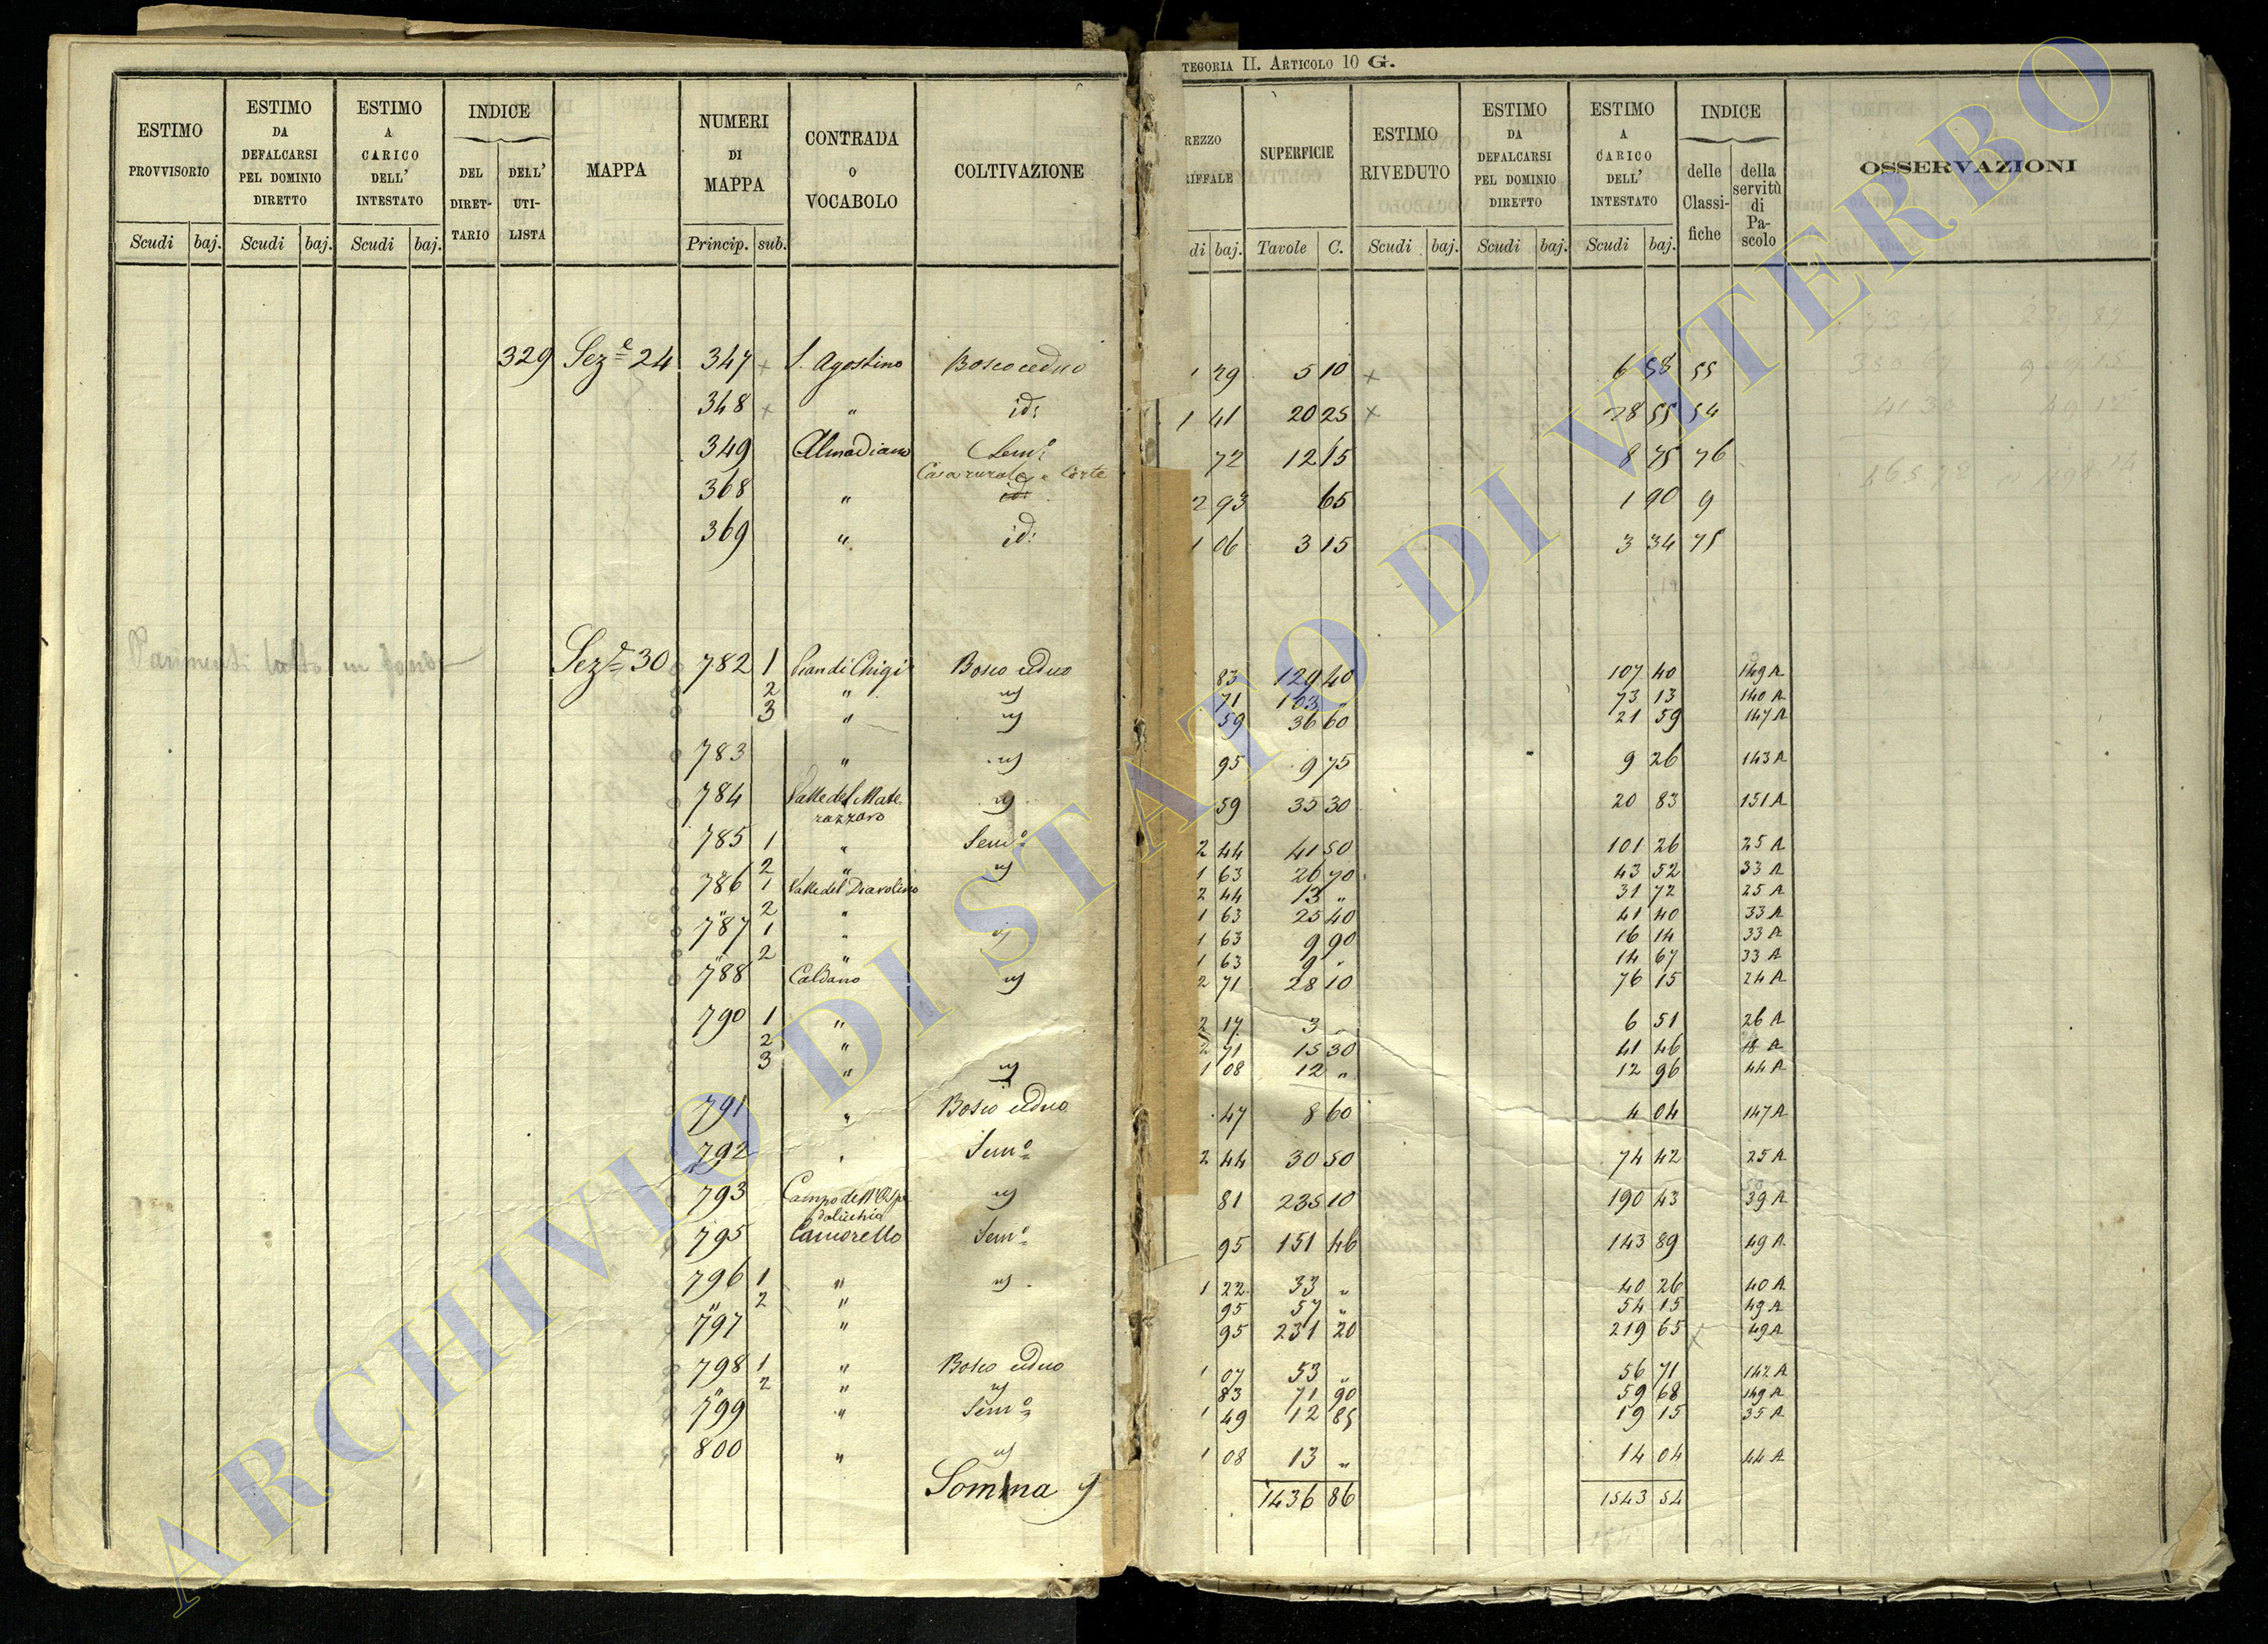 TEGORIA II. ARTICOLO 10 G.
ESTIMO PROVVISORIO
ESTIMO DA DEFALCARSI PEL DOMINIO DIRETTO
ESTIMO A CARICO DELL' INTESTATO
INDICE
DEL DIRET-TARIO
DELL' UTI-LISTA
MAPPA
NUMERI DI MAPPA
CONTRADA O VOCABOLO
COLTIVAZIONE
REZZO RIFFALE
SUPERFICIE
ESTIMO RIVEDUTO
ESTIMO DA DEFALCARSI PEL DOMINIO DIRETTO
ESTIMO A CARICO DELL' INTESTATO
INDICE
delle Classi-fiche
della servitù di Pa-scolo
OSSERVAZIONI
Scudi baj. Scudi baj. Scudi baj. Princip. sub. di baj. Tavole C. Scudi baj. Scudi baj. Scudi baj.
329 Sez.e 24 347 x S. Agostino Bosco ceduo 1 29 5 10 x 6 58 55
348 x " id: 1 41 20 25 x 28 55 54
349 Almadiano Sem.o 72 12 15 8 75 76
368 " Casa rurale e Corte 2 93 65 1 90 9
369 " id: 1 06 3 15 3 34 75
Sez.e 30 782 1 Pian di Chigi Bosco ceduo 83 129 40 107 40 149 A
2 " 71 103 " 73 13 140 A
3 " 59 36 60 21 59 147 A
783 " 95 9 75 9 26 143 A
784 Valle del Mate
razzaro 59 35 30 20 83 151 A
785 1 " Sem.o 2 44 41 50 101 26 25 A
" 2 " 1 63 26 70 43 52 33 A
786 1 Valle del Diavolino 2 44 13 " 31 72 25 A
" 2 " 1 63 25 40 41 40 33 A
787 1 " 1 63 9 90 16 14 33 A
" 2 " 1 63 9 " 14 67 33 A
788 Caldano 2 71 28 10 76 15 24 A
790 1 " 2 17 3 " 6 51 26 A
2 " 2 71 15 30 41 46 18 A
3 " 1 08 12 " 12 96 44 A
791 " Bosco ceduo 47 8 60 4 04 147 A
792 " Sem.o 2 44 30 50 74 42 25 A
793 81 235 10 190 43 39 A
795 Camorello Sem.o 95 151 46 143 89 49 A
796 1 " 1 22 33 " 40 26 40 A
" 2 " 95 57 " 54 15 49 A
797 " 95 231 20 219 65 49 A
798 1 " Bosco ceduo 1 07 53 " 56 71 142 A
" 2 " 83 71 90 59 68 149 A
799 " Sem.o 1 49 12 85 19 15 35 A
800 " 1 08 13 " 14 04 44 A
Somma 1436 86 1543 54
ARCHIVIO DI STATO DI VITERBO